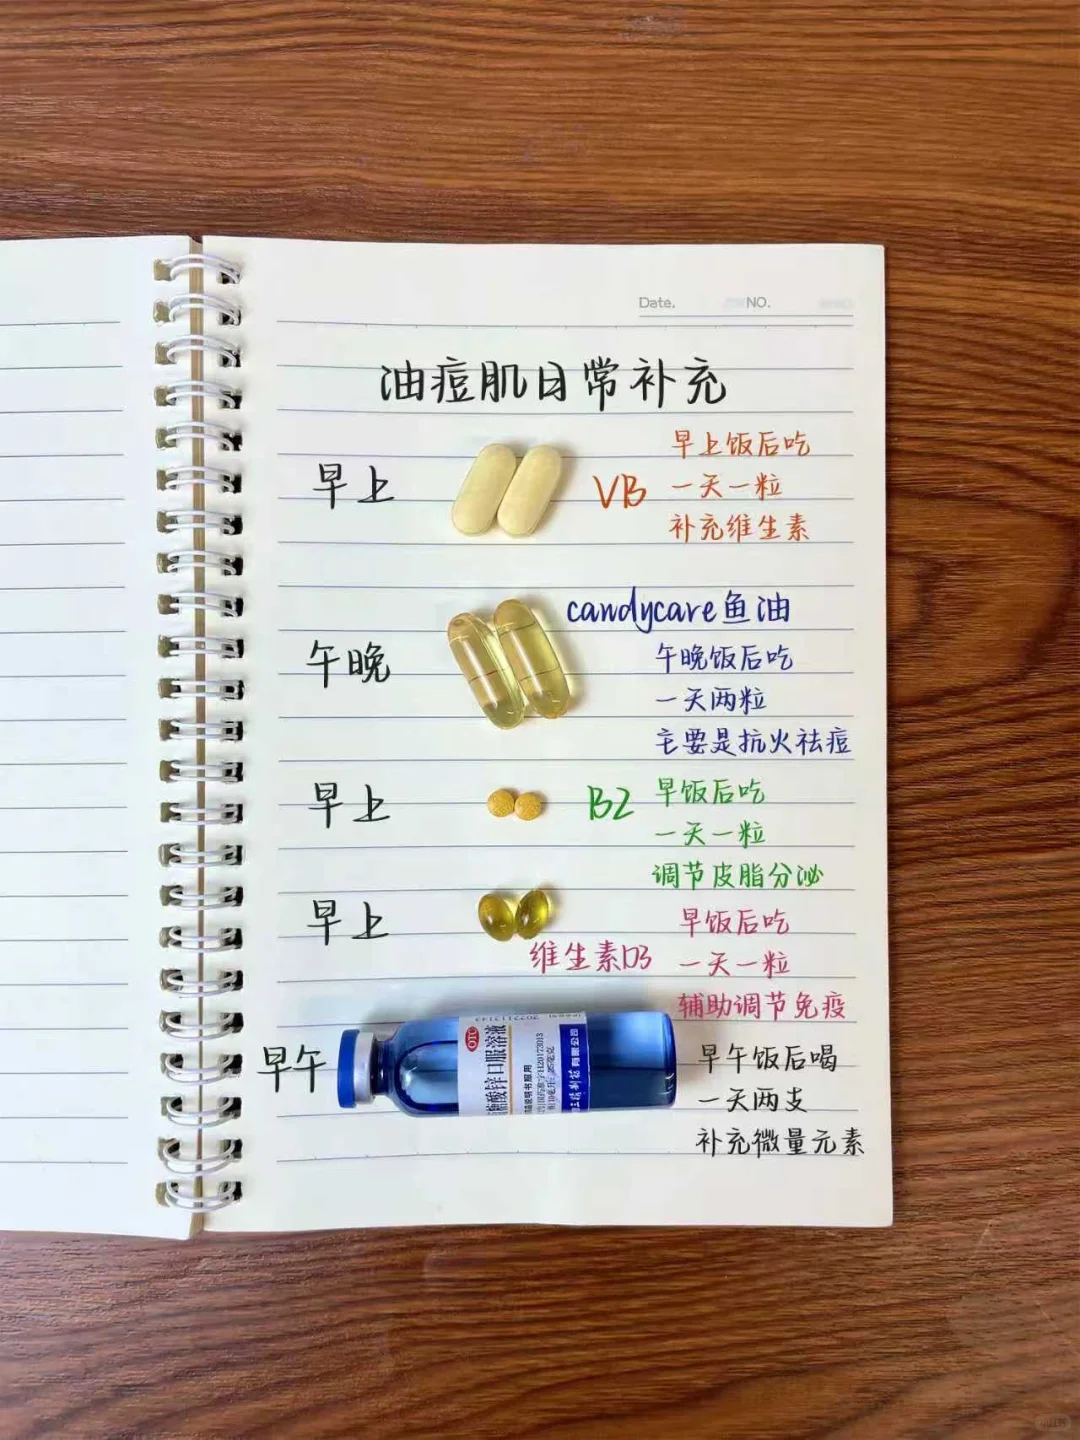 Date.
NO.
油痘肌日常补充
早上
VB
早上饭后吃
一天一粒
补充维生素
午晚
candycare鱼油
午晚饭后吃
一天两粒
主要是抗火祛痘
早上
B2
早饭后吃
一天一粒
调节皮脂分泌
早上
维生素D3
早饭后吃
一天一粒
辅助调节免疫
早午
OTC
糖酸锌口服溶液
说明书服用
有限公司
早午饭后喝
一天两支
补充微量元素
小红书